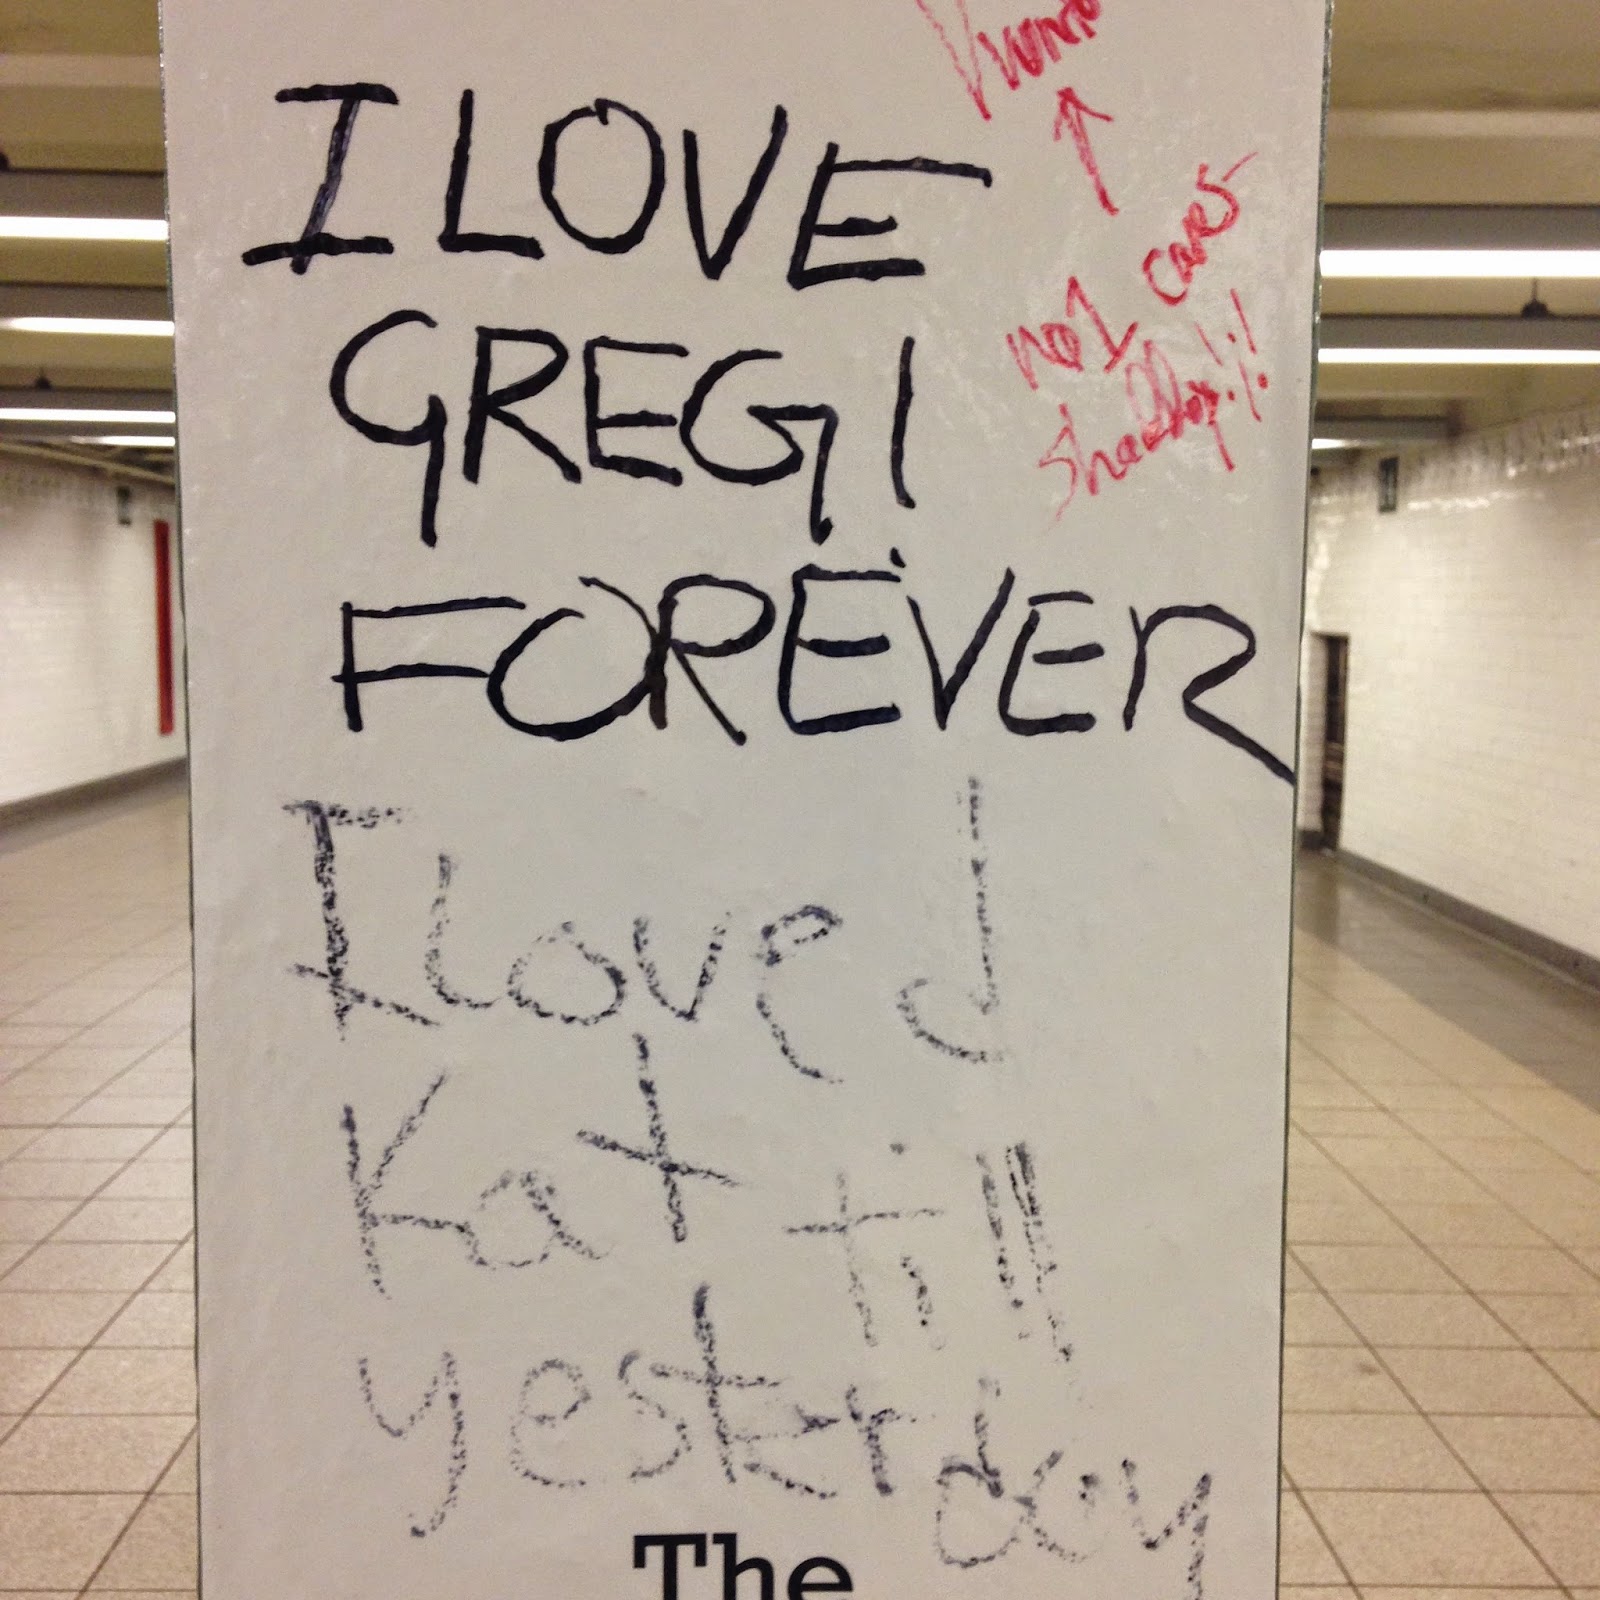 I LOVE
GREG!
FOREVER
no 1 cares
I loved
Kat till
yesterday
The